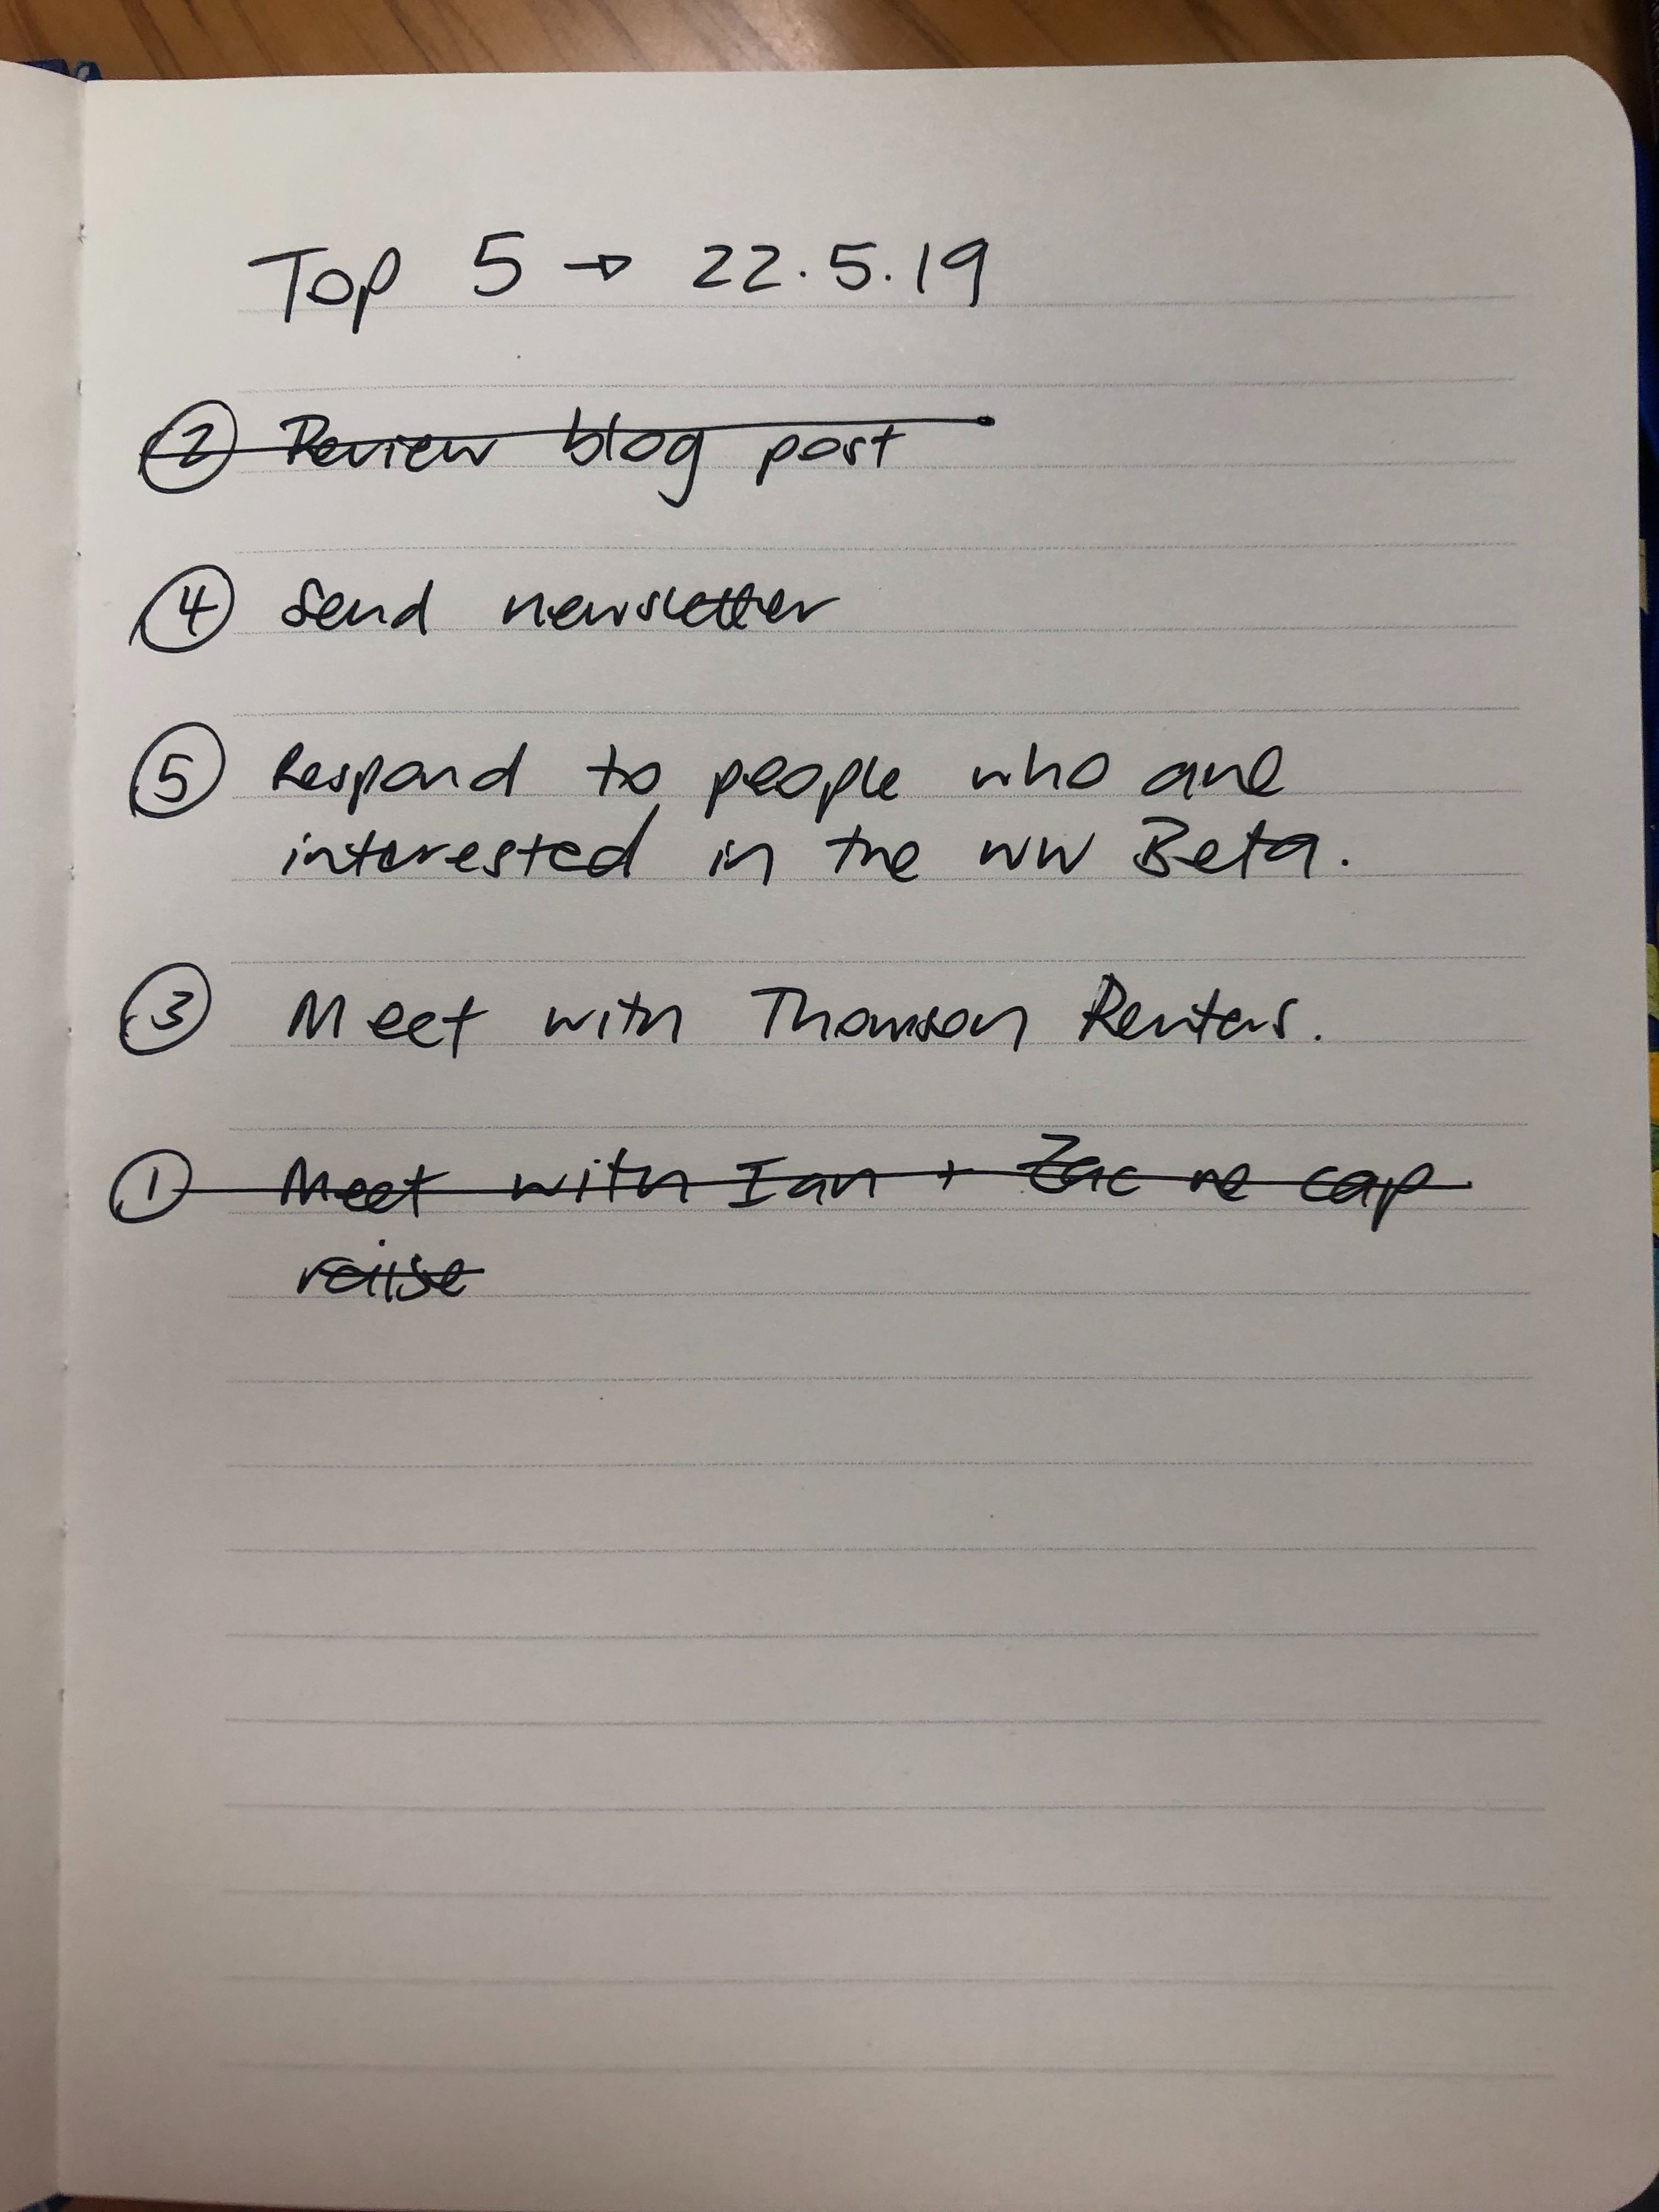 Top 5 → 22.5.19
② Review blog post
④ Send newsletter
⑤ Respond to people who are
interested in the WW Beta.
③ Meet with Thomson Reuters.
① Meet with Ian + Zac re cap
raise